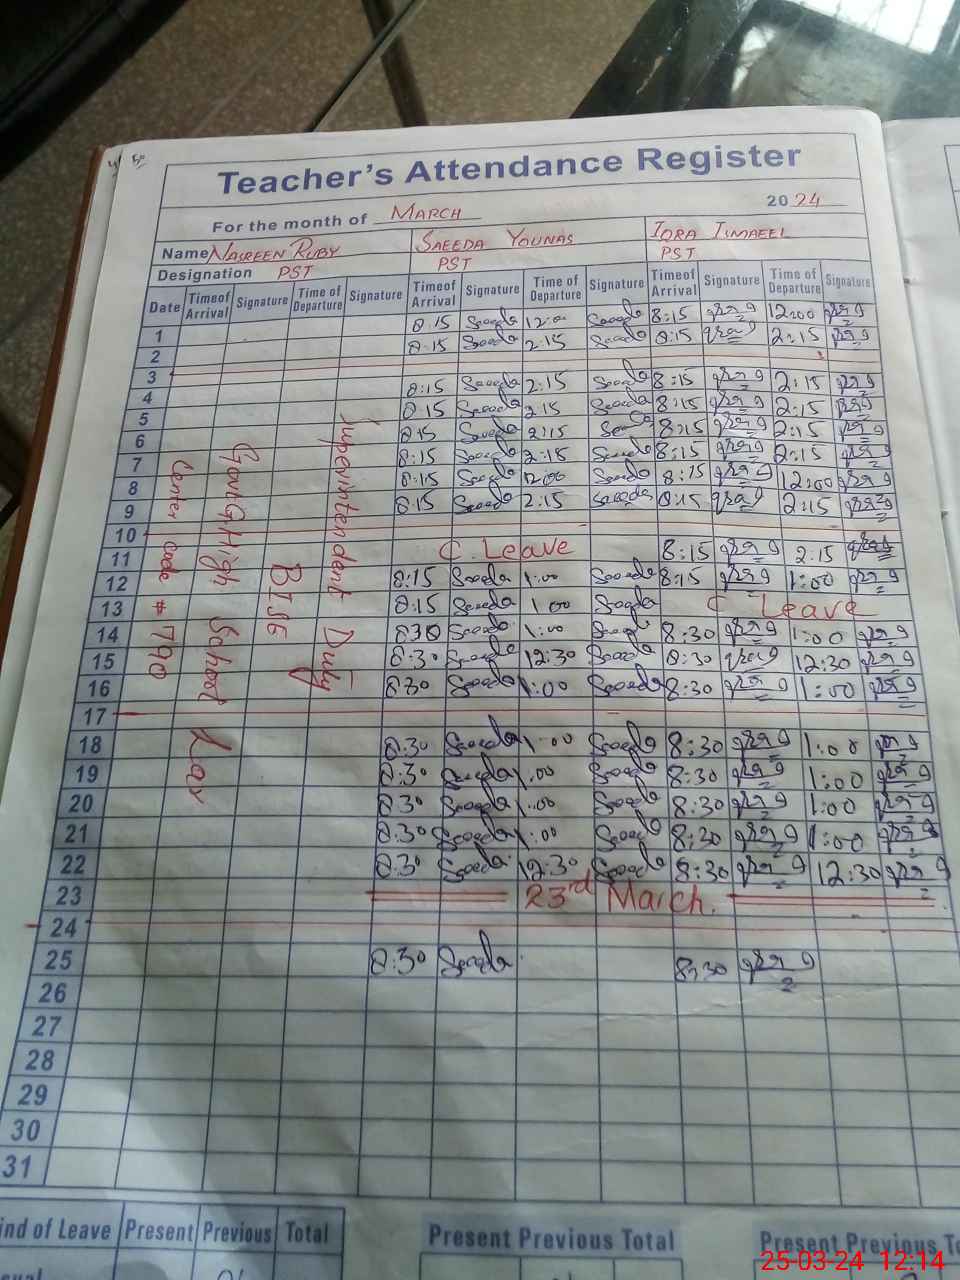 Teacher's Attendance Register
For the month of MARCH 2024
Name NASREEN RUBY SAEEDA YOUNAS IQRA ISMAEEL
Designation PST PST PST
Date Time of Arrival Signature Time of Departure Signature Time of Arrival Signature Time of Departure Signature Time of Arrival Signature Time of Departure Signature
1 8:15 Saeeda 12:00 Saeeda 8:15 12:00
2 8:15 Saeeda 2:15 Saeeda 8:15 2:15
3
4 8:15 Saeeda 2:15 Saeeda 8:15 2:15
5 8:15 Saeeda 2:15 Saeeda 8:15 2:15
6 8:15 Saeeda 2:15 Saeeda 8:15 2:15
7 8:15 Saeeda 2:15 Saeeda 8:15 2:15
8 8:15 Saeeda 12:00 Saeeda 8:15 12:00
9 8:15 Saeeda 2:15 Saeeda 8:15 2:15
10
11 C. Leave 8:15 2:15
12 8:15 Saeeda 1:00 Saeeda 8:15 1:00
13 8:15 Saeeda 1:00 Saeeda C Leave
14 8:30 Saeeda 1:00 Saeeda 8:30 1:00
15 8:30 Saeeda 12:30 Saeeda 8:30 12:30
16 8:30 Saeeda 1:00 Saeeda 8:30 1:00
17
18 8:30 Saeeda 1:00 Saeeda 8:30 1:00
19 8:30 Saeeda 1:00 Saeeda 8:30 1:00
20 8:30 Saeeda 1:00 Saeeda 8:30 1:00
21 8:30 Saeeda 1:00 Saeeda 8:30 1:00
22 8:30 Saeeda 12:30 Saeeda 8:30 12:30
23 23rd March.
24
25 8:30 Saeeda 8:30
26
27
28
29
30
31
Superintendent Duty
BISE
Govt G High School Lar
Center Code # 790
ind of Leave Present Previous Total Present Previous Total Present Previous To
25-03-24 12:14